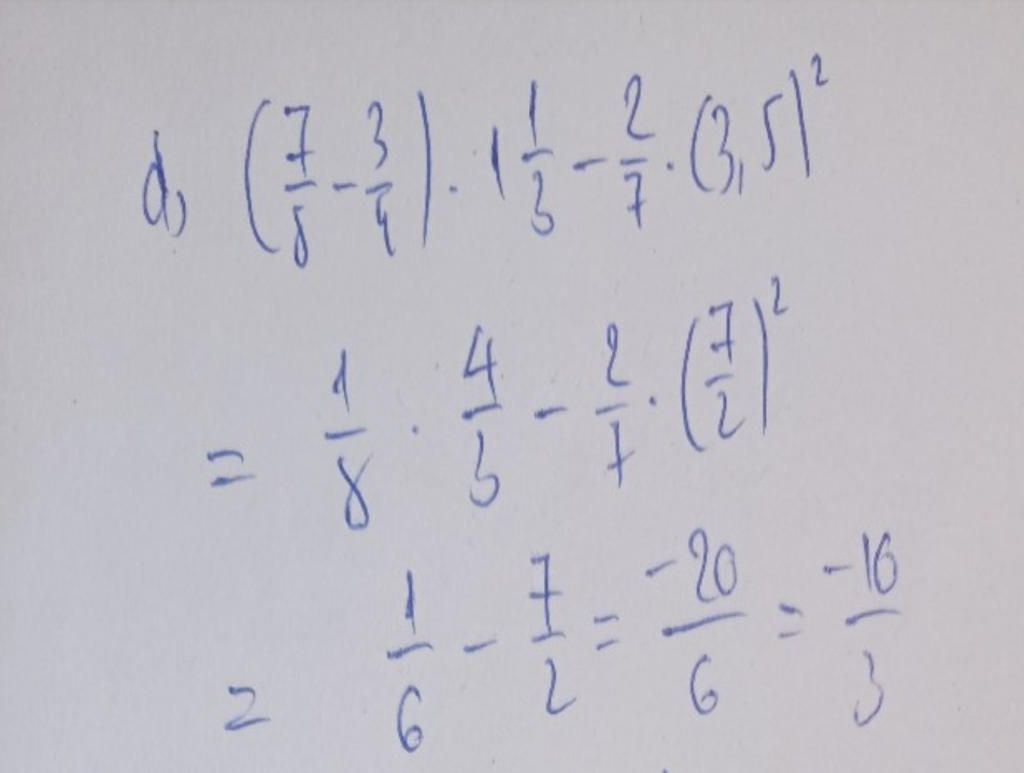 d, (7/8 - 3/4) . 1 1/3 - 2/7 . (3,5)²
= 1/8 . 4/3 - 2/7 . (7/2)²
= 1/6 - 7/2 = -20/6 = -10/3